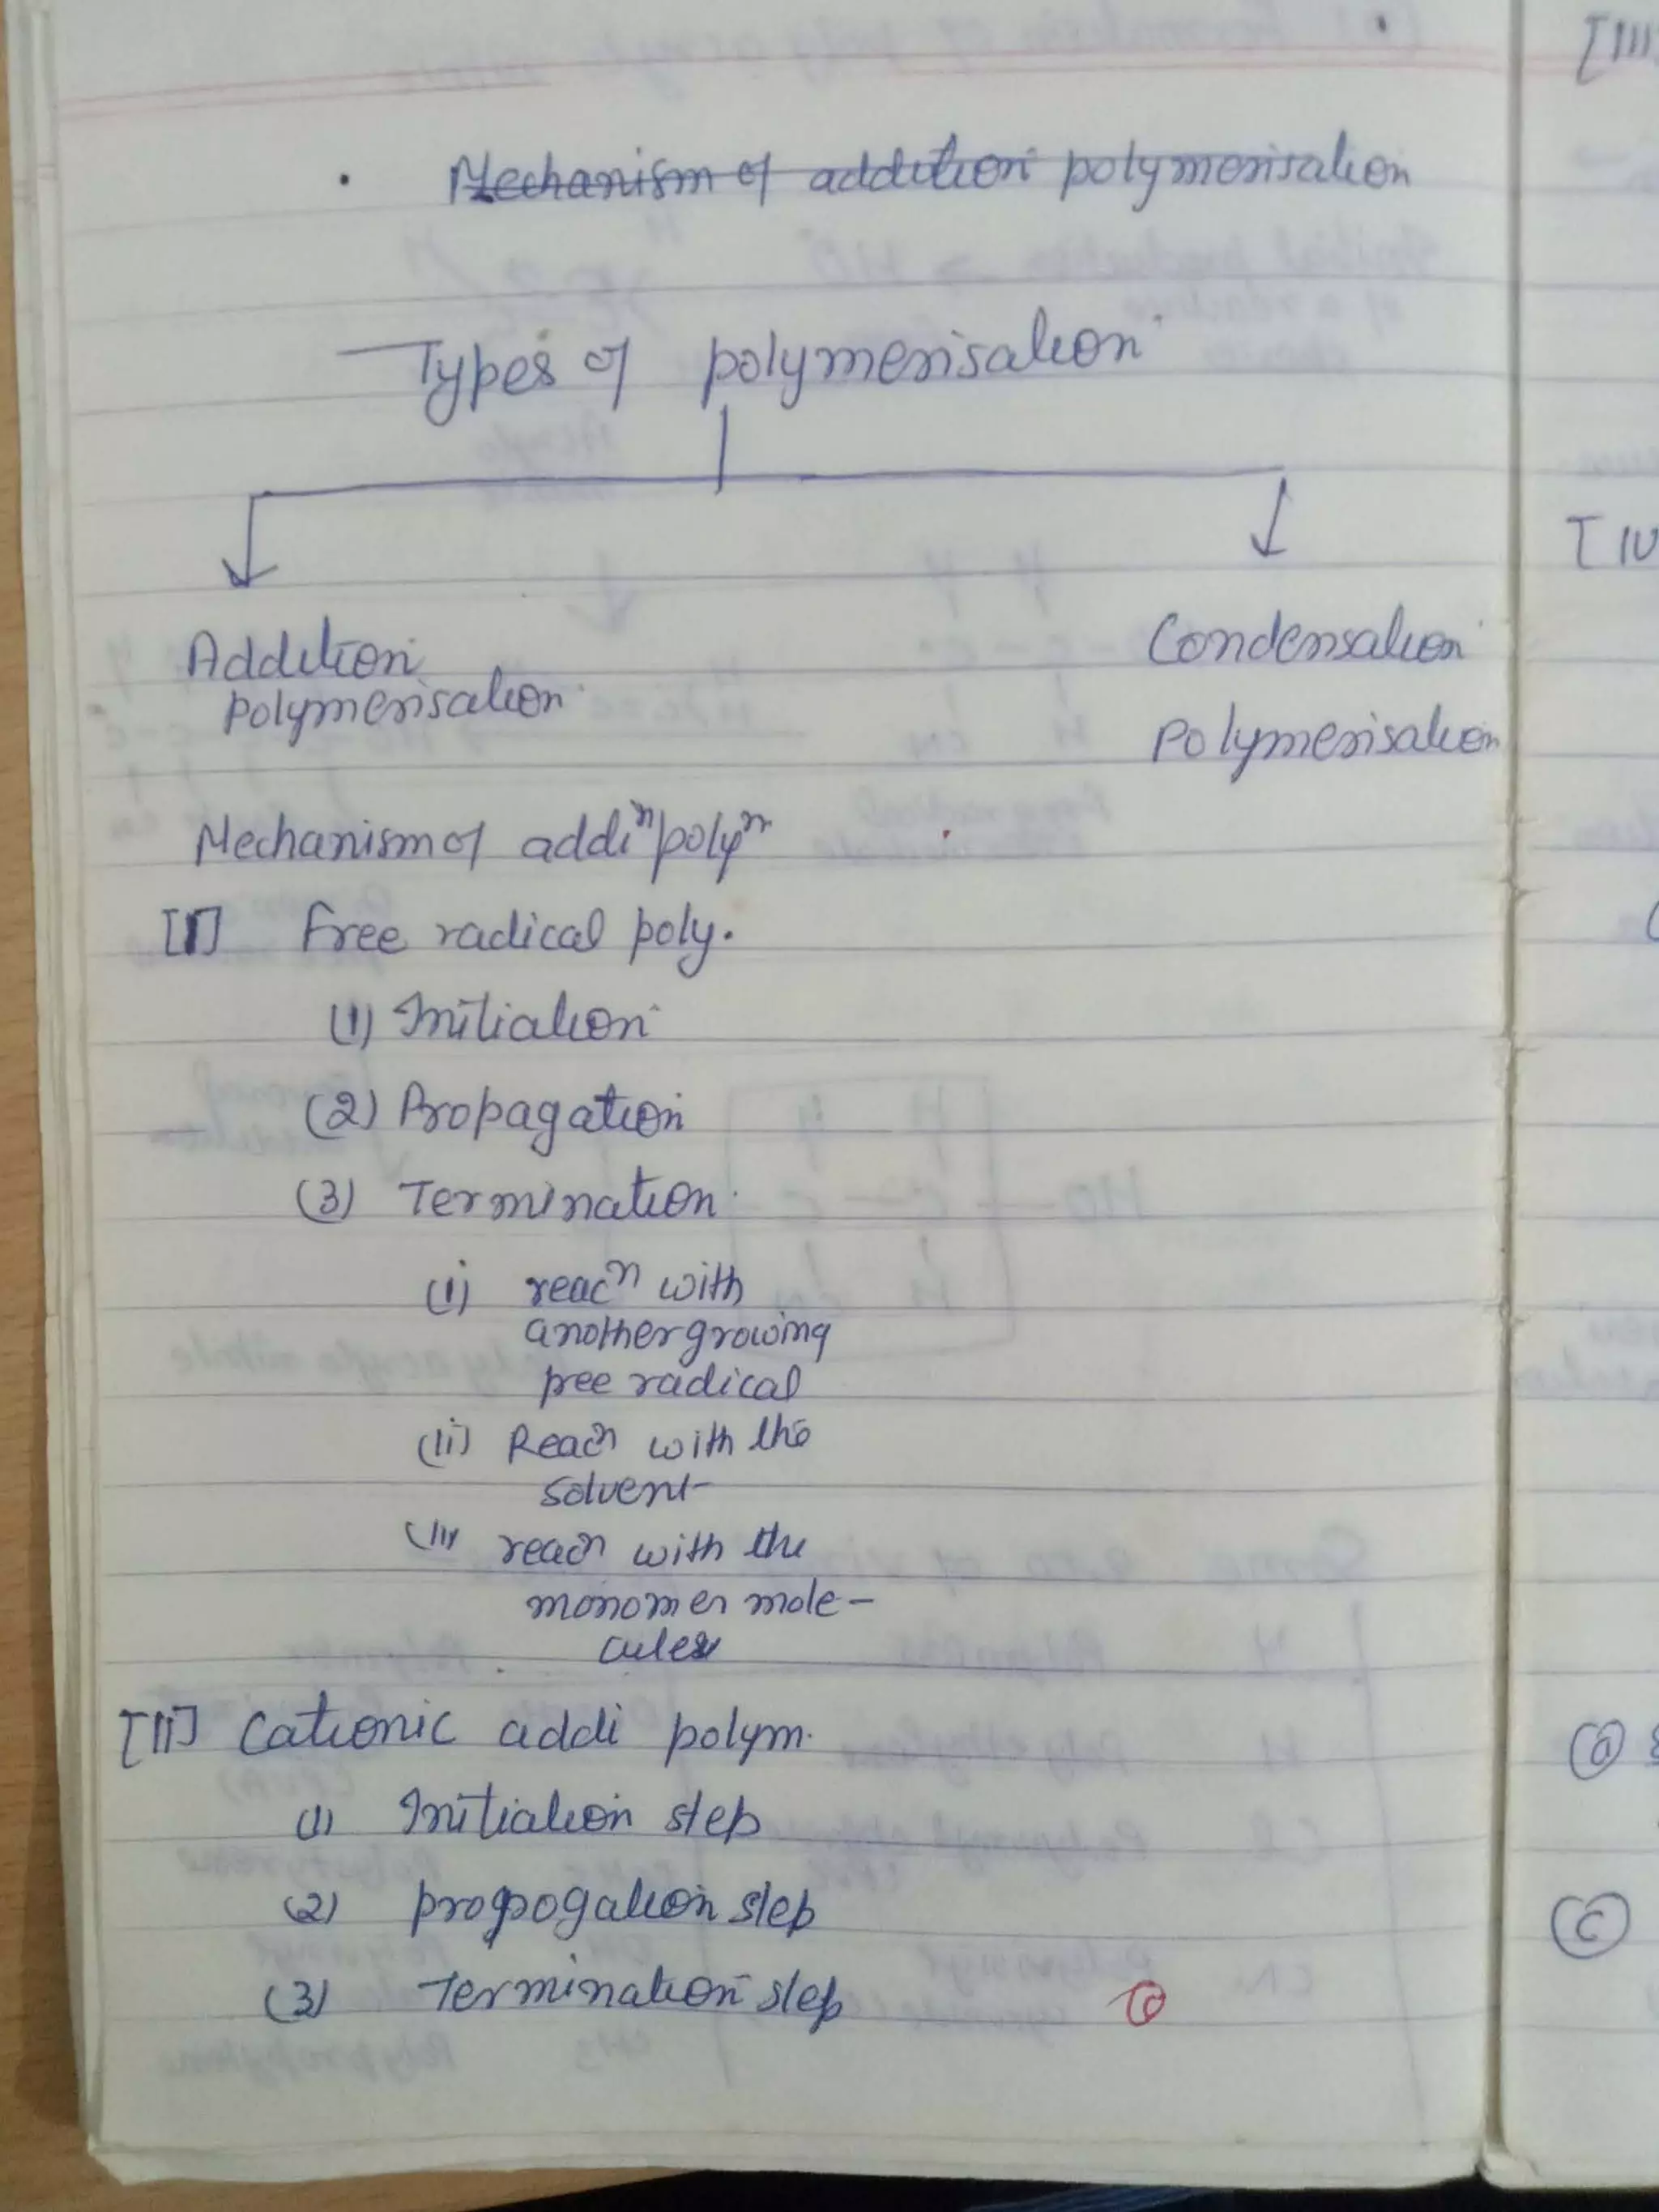 Mechanism of addition polymerisation
Types of polymerisation
Addition
polymerisation
Condensation
Polymerisation
Mechanism of addiⁿ polyⁿ
[I] Free radical poly.
(1) Initiation
(2) Propagation
(3) Termination
(i) reacⁿ with
another growing
free radical
(ii) Reacⁿ with the
solvent
(iii) reacⁿ with the
monomer mole-
cules
[II] Cationic addi polym.
(1) Initiation step
(2) propogation step
(3) Termination step
[III
[IV
(a)
(c)